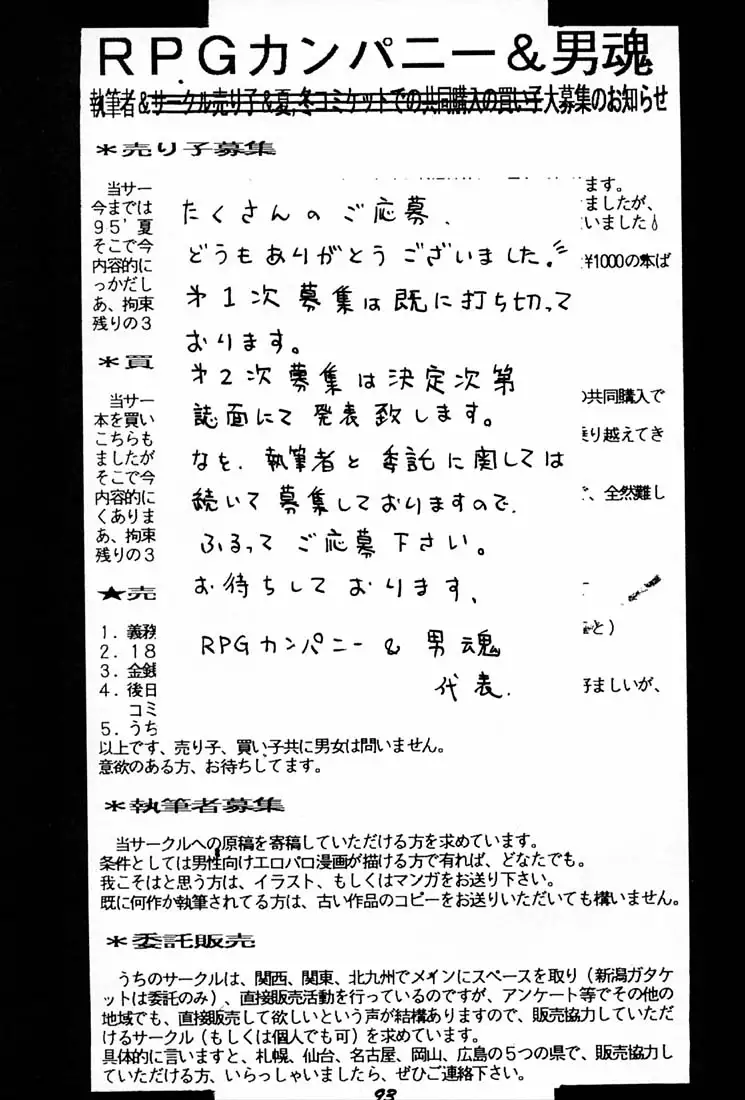 RPGカンパニー＆男魂
執筆者＆サークル売り子＆夏,冬コミケットでの共同購入の買い子大募集のお知らせ
＊売り子募集
当サー
ます。
今までは
ましたが、
９５’夏
いました
そこで今
内容的に
¥1000の本ば
っかだし
あ、拘束
残りの３
たくさんのご応募、
どうもありがとうございました!
第1次募集は既に打ち切って
おります。
第2次募集は決定次第
誌面にて発表致します。
なを、執筆者と委託に関しては
続いて募集しておりますので、
ふるってご応募下さい。
お待ちしております、
RPGカンパニー＆男魂
代表.
＊買
当サー
の共同購入で
本を買い
こちらも
乗り越えてき
ましたが
そこで今
内容的に
、全然難し
くありま
あ、拘束
残りの３
★売
１．義務
と）
２．１８
３．金銭
４．後日
好ましいが、
コミ
５．うち
以上です、売り子、買い子共に男女は問いません。
意欲のある方、お待ちしてます。
＊執筆者募集
当サークルへの原稿を寄稿していただける方を求めています。
条件としては男性向けエロパロ漫画が描ける方で有れば、どなたでも。
我こそはと思う方は、イラスト、もしくはマンガをお送り下さい。
既に何作か執筆されてる方は、古い作品のコピーをお送りいただいても構いません。
＊委託販売
うちのサークルは、関西、関東、北九州でメインにスペースを取り（新潟ガタケ
ットは委託のみ）、直接販売活動を行っているのですが、アンケート等でその他の
地域でも、直接販売して欲しいという声が結構ありますので、販売協力していただ
けるサークル（もしくは個人でも可）を求めています。
具体的に言いますと、札幌、仙台、名古屋、岡山、広島の５つの県で、販売協力し
ていただける方、いらっしゃいましたら、ぜひご連絡下さい。
93